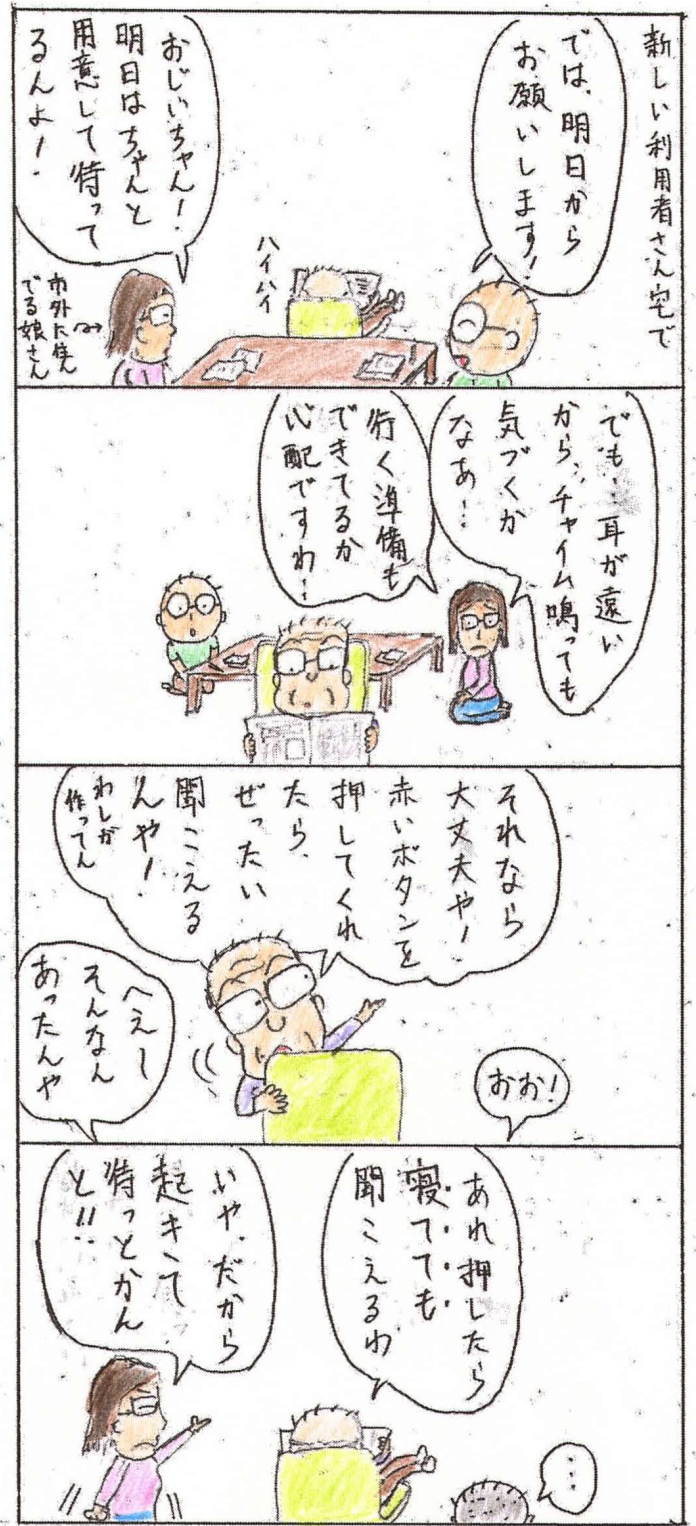 新しい利用者さん宅で
では、明日から
お願いします!
ハイハイ
おじいちゃん!
明日はちゃんと
用意して待って
るんよ!
市外に住ん
でる娘さん
でも、耳が遠い
から、チャイム鳴っても
気づくか
なあ…
行く準備も
できてるか
心配ですわ…
それなら
大丈夫や!
赤いボタンを
押してくれ
たら、
ぜったい
聞こえる
んや!
わしが
作ってん
おお!
へえー
そんなん
あったんや
あれ押したら
寝てても
聞こえるわ
いや、だから
起きて
待っとかん
と!!
…